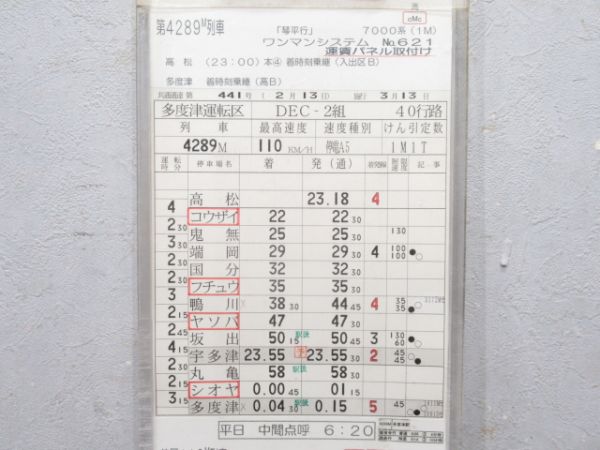 cMc
第4289M列車 「琴平行」 7000系(1M)
ワンマンシステム No621
運賃パネル取付け
高松 (23:00)本④ 着時刻乗継(入出区B)
多度津 着時刻乗継(高B)
441号 2月13日 3月13日
多度津運転区 DEC-2組 40行路
列車 最高速度 速度種別 けん引定数
4289M 110KM/H 停電A5 1M1T
運転時分 停車場名 着 発(通) 着発線 制限速度 記事
高松 23.18 4
4
コウザイ 22 22 30
2 30
鬼無 25 25 30 130
3 30
端岡 29 29 30 4 100 100
2 30
国分 32 32 30
2 30
フチュウ 35 35 30
3
鴨川 38 30 44 45 4 35 35
2 15
ヤソバ 47 47 30
2 45
坂出 50 15 駅後 50 45 3 130 60
4 15
宇多津 23.55 23.55 30 2 45 45
2 30
丸亀 58 駅後 58 30
2 15
シオヤ 0.00 45 01 15
3 15
多度津 0.04 30 駅後 0.15 5 45
平日 中間点呼 6:20